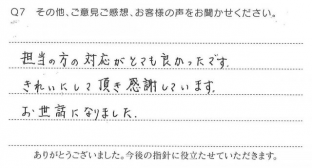 Q7 その他、ご意見ご感想、お客様の声をお聞かせください。
担当の方の対応がとても良かったです。
きれいにして頂き感謝しています。
お世話になりました。
ありがとうございました。今後の指針に役立たせていただきます。